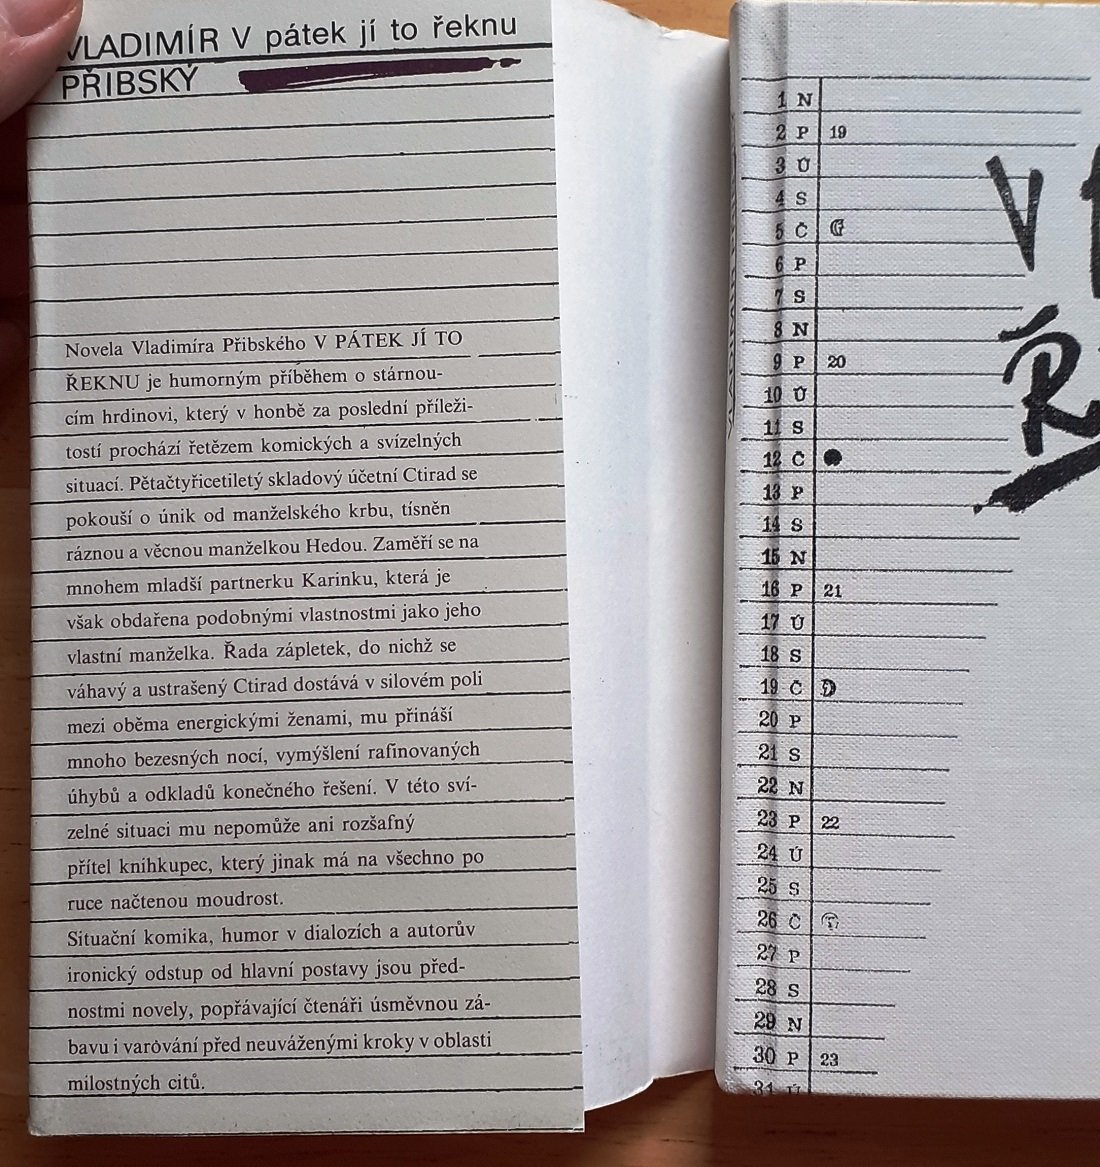 VLADIMÍR V pátek jí to řeknu
PŘIBSKÝ
Novela Vladimíra Přibského V PÁTEK JÍ TO
ŘEKNU je humorným příběhem o stárnou-
cím hrdinovi, který v honbě za poslední příleži-
tostí prochází řetězem komických a svízelných
situací. Pětačtyřicetiletý skladový účetní Ctirad se
pokouší o únik od manželského krbu, tísněn
ráznou a věcnou manželkou Hedou. Zaměří se na
mnohem mladší partnerku Karinku, která je
však obdařena podobnými vlastnostmi jako jeho
vlastní manželka. Řada zápletek, do nichž se
váhavý a ustrašený Ctirad dostává v silovém poli
mezi oběma energickými ženami, mu přináší
mnoho bezesných nocí, vymýšlení rafinovaných
úhybů a odkladů konečného řešení. V této sví-
zelné situaci mu nepomůže ani rozšafný
přítel knihkupec, který jinak má na všechno po
ruce načtenou moudrost.
Situační komika, humor v dialozích a autorův
ironický odstup od hlavní postavy jsou před-
nostmi novely, popřávající čtenáři úsměvnou zá-
bavu i varování před neuváženými kroky v oblasti
milostných citů.
1 N
2 P 19
3 Ú
4 S
5 Č
6 P
7 S
8 N
9 P 20
10 Ú
11 S
12 Č
13 P
14 S
15 N
16 P 21
17 Ú
18 S
19 Č
20 P
21 S
22 N
23 P 22
24 Ú
25 S
26 Č
27 P
28 S
29 N
30 P 23
31 Ú
V
Ř